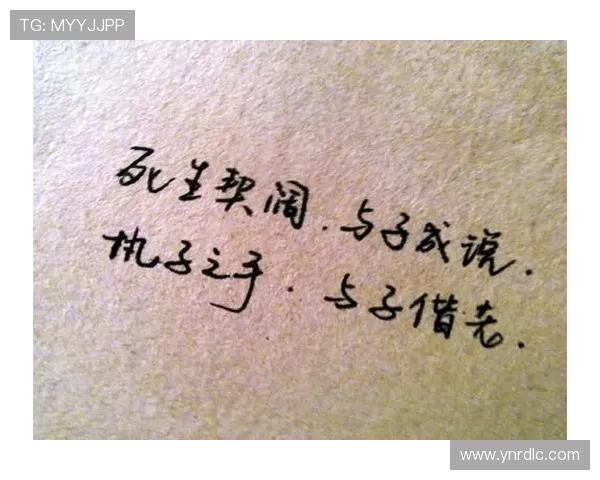 TG: MYYJJPP
死生契阔.与子成说.
执子之手.与子偕老.
www.ynrdlc.com